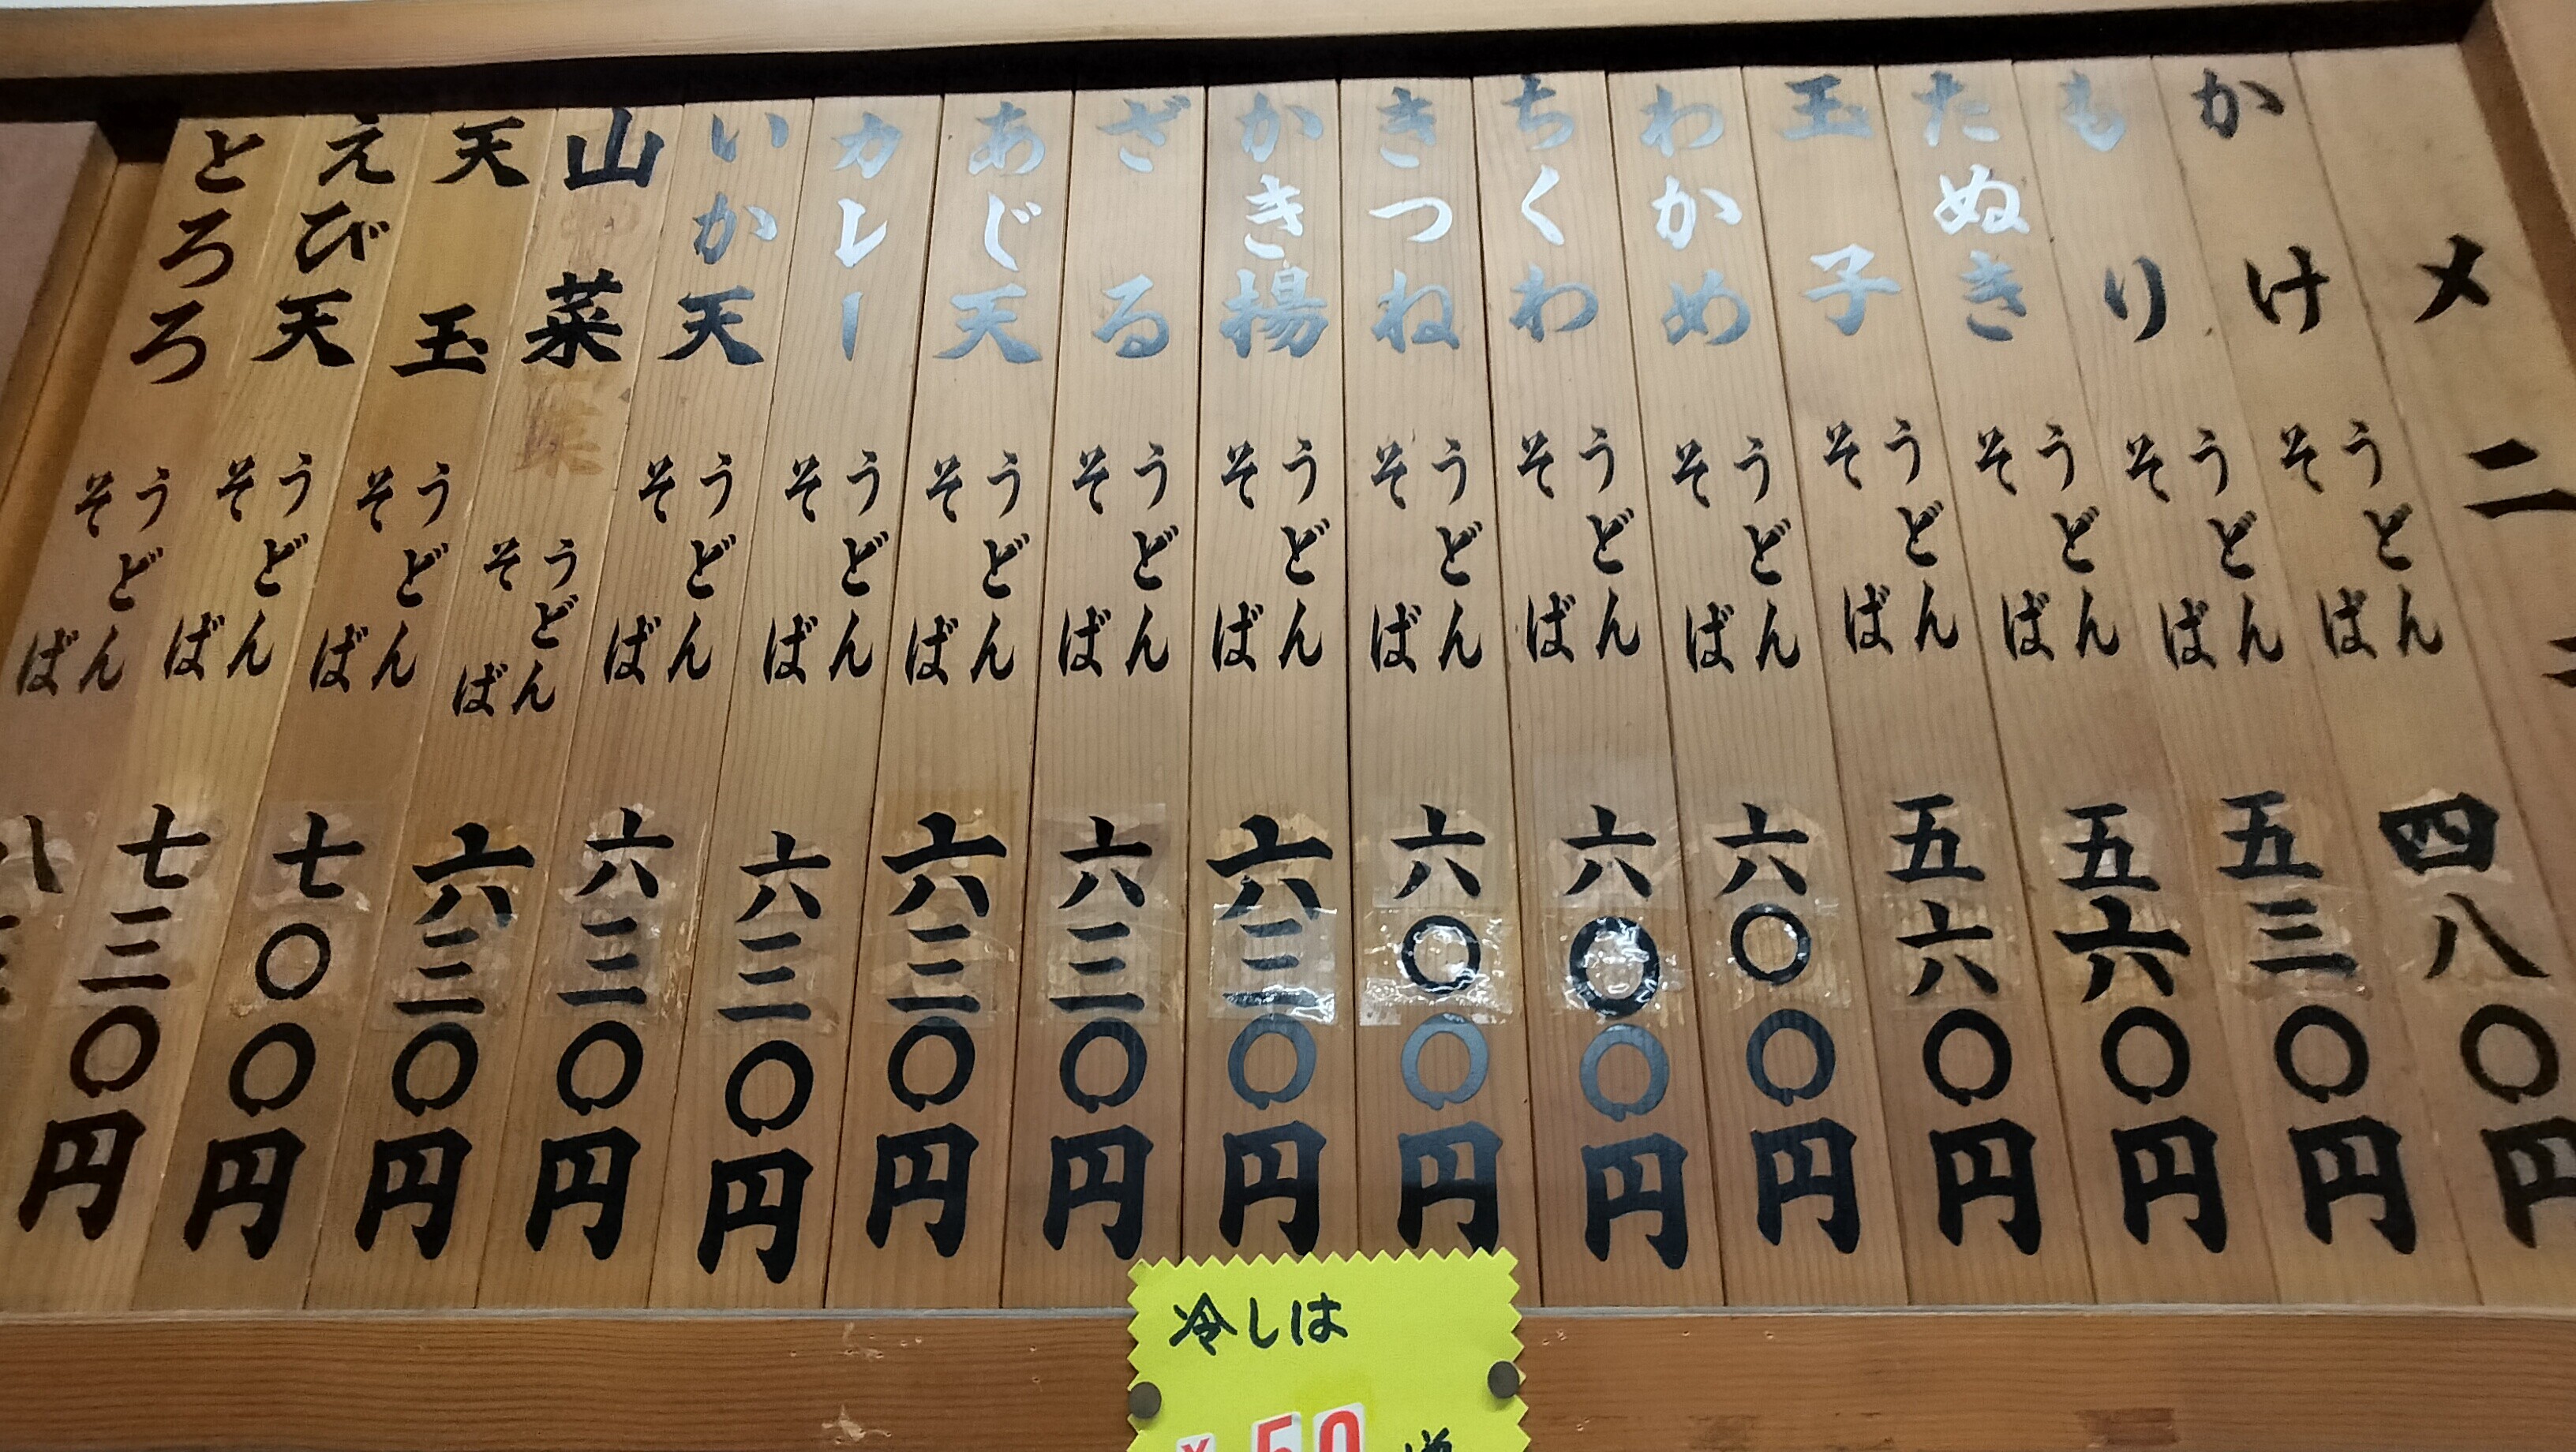 メニ
かけ うどん そば 四八〇円
もり うどん そば 五三〇円
たぬき うどん そば 五六〇円
玉子 うどん そば 五六〇円
わかめ うどん そば 六〇〇円
ちくわ うどん そば 六〇〇円
きつね うどん そば 六〇〇円
かき揚 うどん そば 六三〇円
ざる うどん そば 六三〇円
あじ天 うどん そば 六三〇円
カレー うどん そば 六三〇円
いか天 うどん そば 六三〇円
山菜 うどん そば 六三〇円
天玉 うどん そば 七〇〇円
えび天 うどん そば 七三〇円
とろろ うどん そば 八
冷しは
¥50